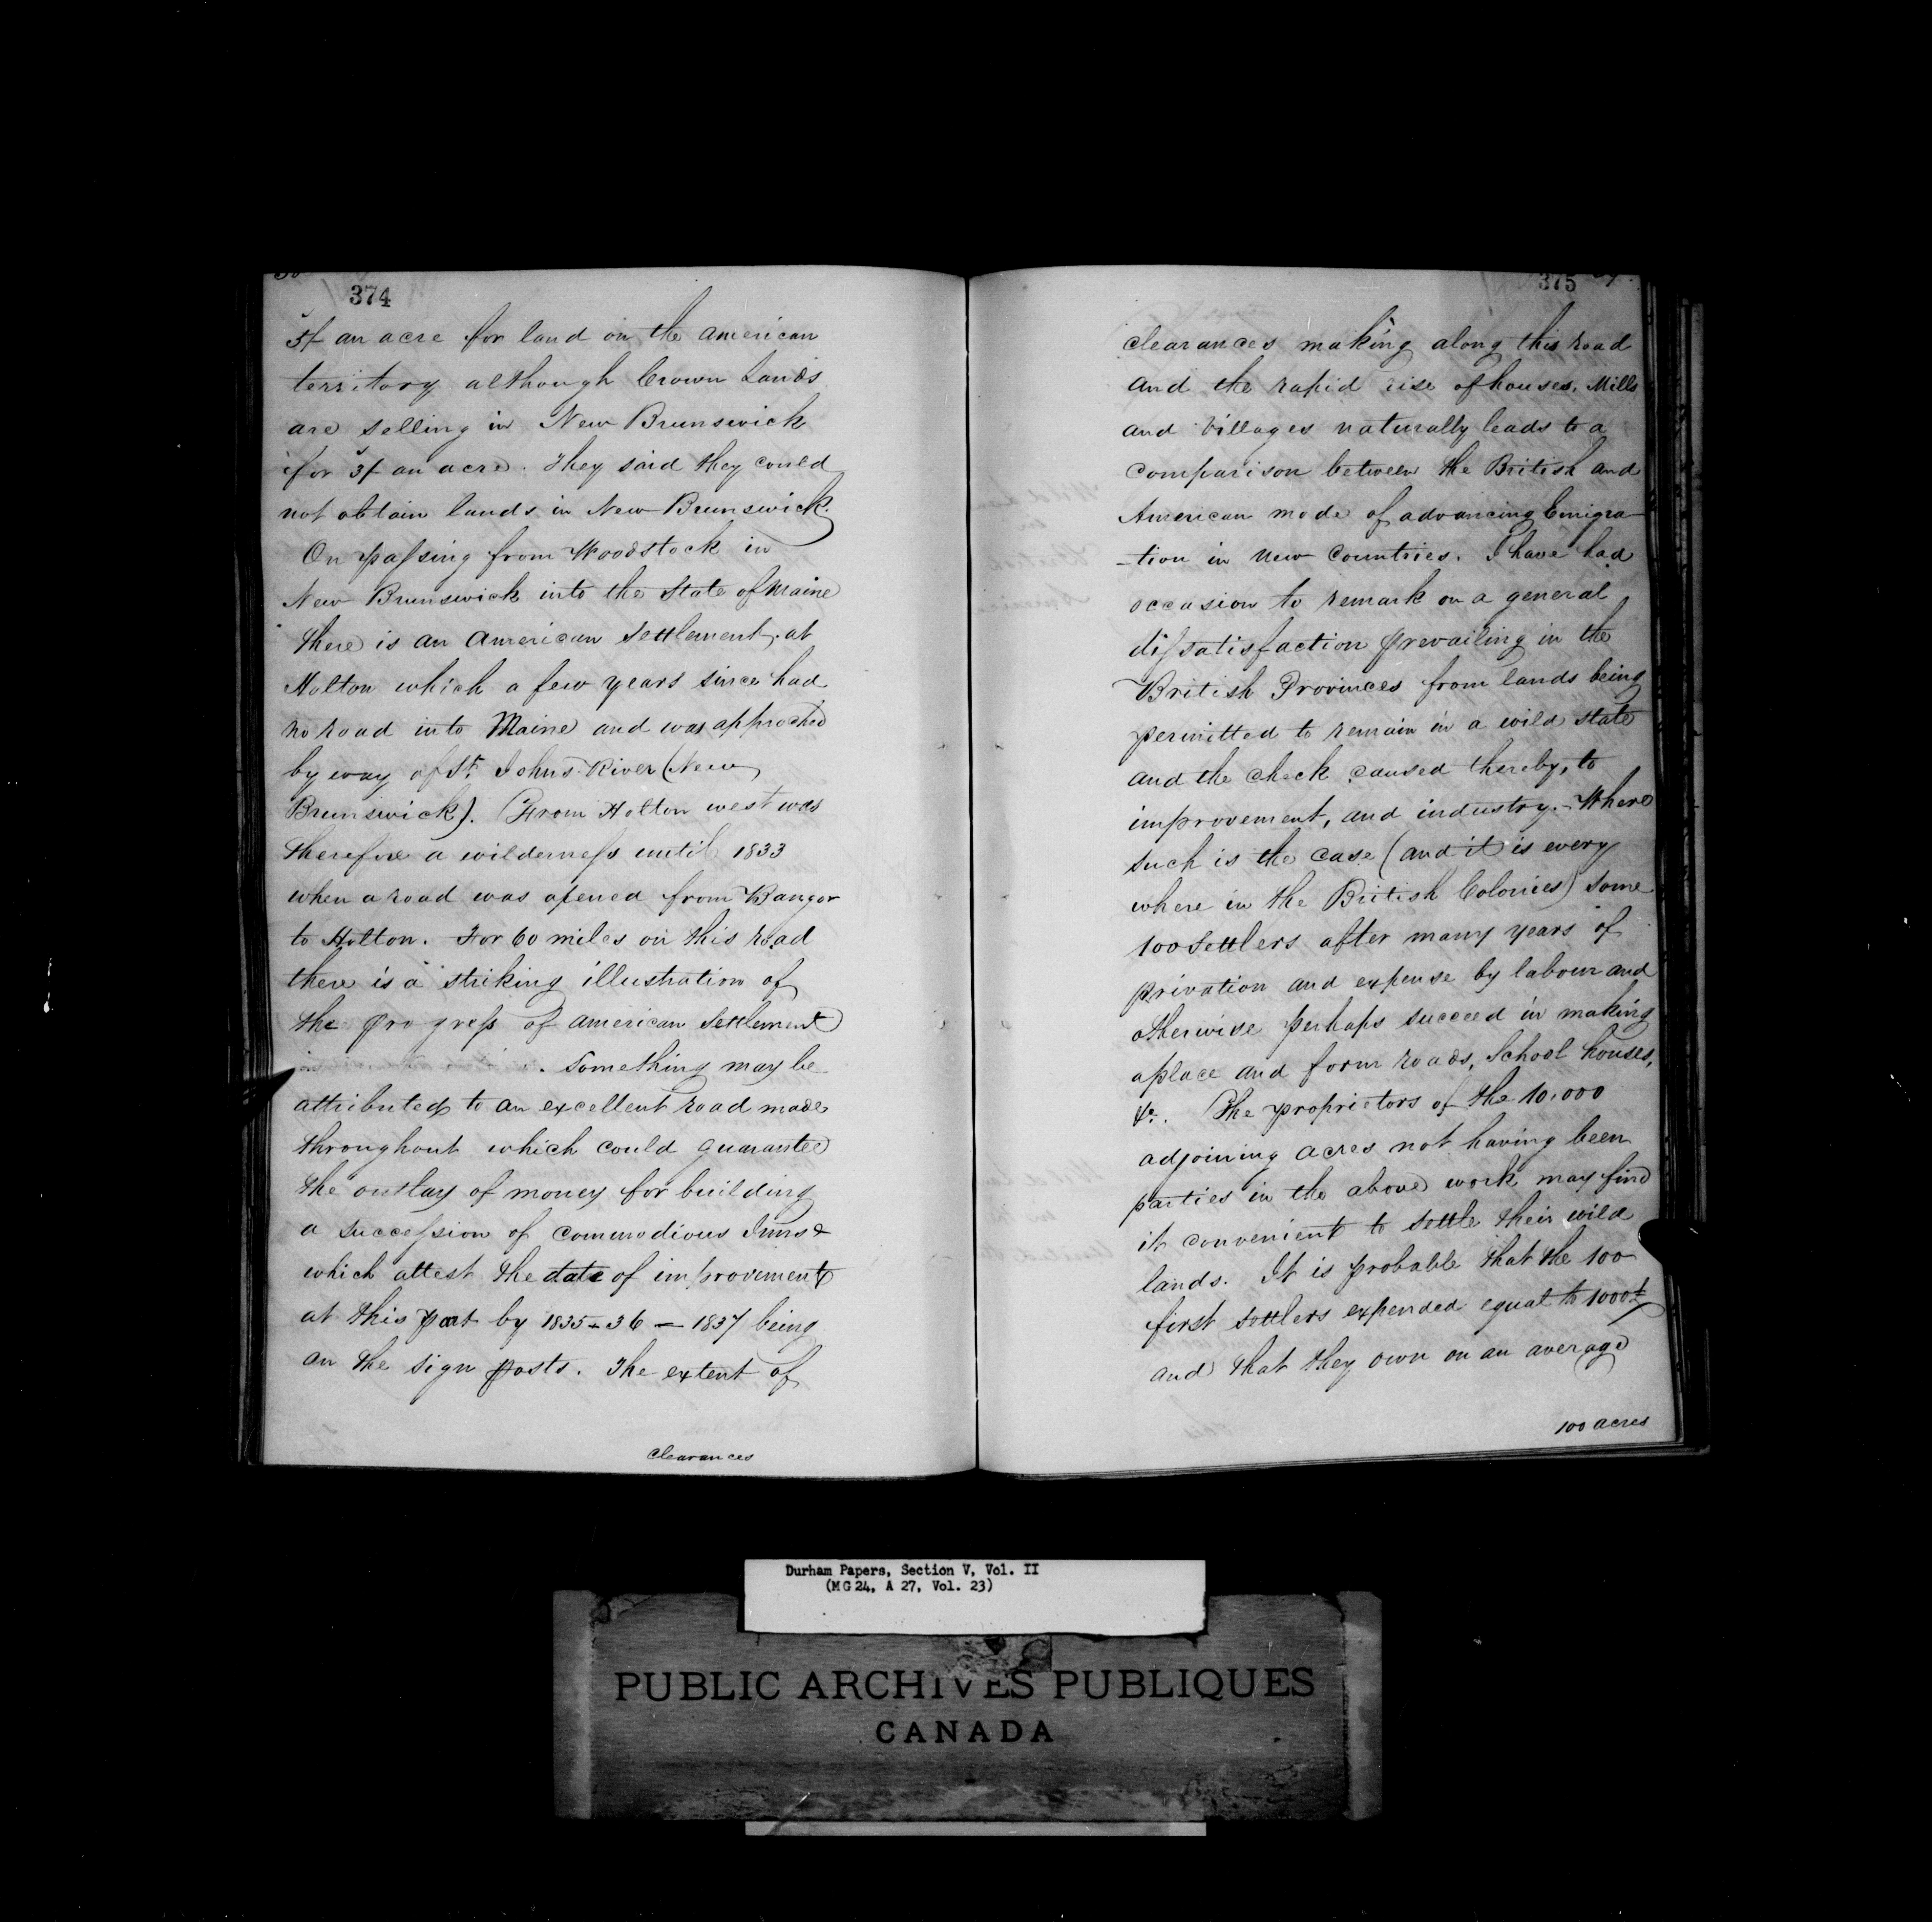 374
3/ an acre for land on the American
territory although Crown Lands
are selling in New Brunswick
for 3/ an acre. They said they could
not obtain lands in New Brunswick.
On passing from Woodstock in
New Brunswick into the State of Maine
there is an American Settlement at
Holton which a few years since had
no road into Maine and was approched
by way of St. Johns River (New
Brunswick). From Holton west was
therefore a wilderness until 1833
when a road was opened from Bangor
to Holton. For 60 miles on this road
there is a striking illustration of
the progress of American Settlement
. Something may be
attributed to an excellent road made
throughout which could guarantee
the outlay of money for building
a succession of commodious Inns &
which attest the date of improvement
at this part by 1835-36-1837 being
on the sign posts. The extent of
clearances
375
clearances making along this road
and the rapid rise of houses, Mills
and Villages naturally leads to a
comparison between the British and
American mode of advancing Emigra-
-tion in new Countries. I have had
occasion to remark on a general
dissatisfaction prevailing in the
British Provinces from lands being
permitted to remain in a wild state
and the check caused thereby, to
improvement, and industry. - Where
such is the case (and it is every
where in the British Colonies) some
100 Settlers after many years of
privation and expense by labour and
otherwise perhaps succeed in making
a place and form roads, School houses,
&c. The proprietors of the 10,000
adjoining acres not having been
parties in the above work may find
it convenient to settle their wild
lands. It is probable that the 100
first settlers expended equal to 1000£
and that they own on an average
100 acres
Durham Papers, Section V, Vol. II
(MG 24, A 27, Vol. 23)
PUBLIC ARCHIVES PUBLIQUES
CANADA